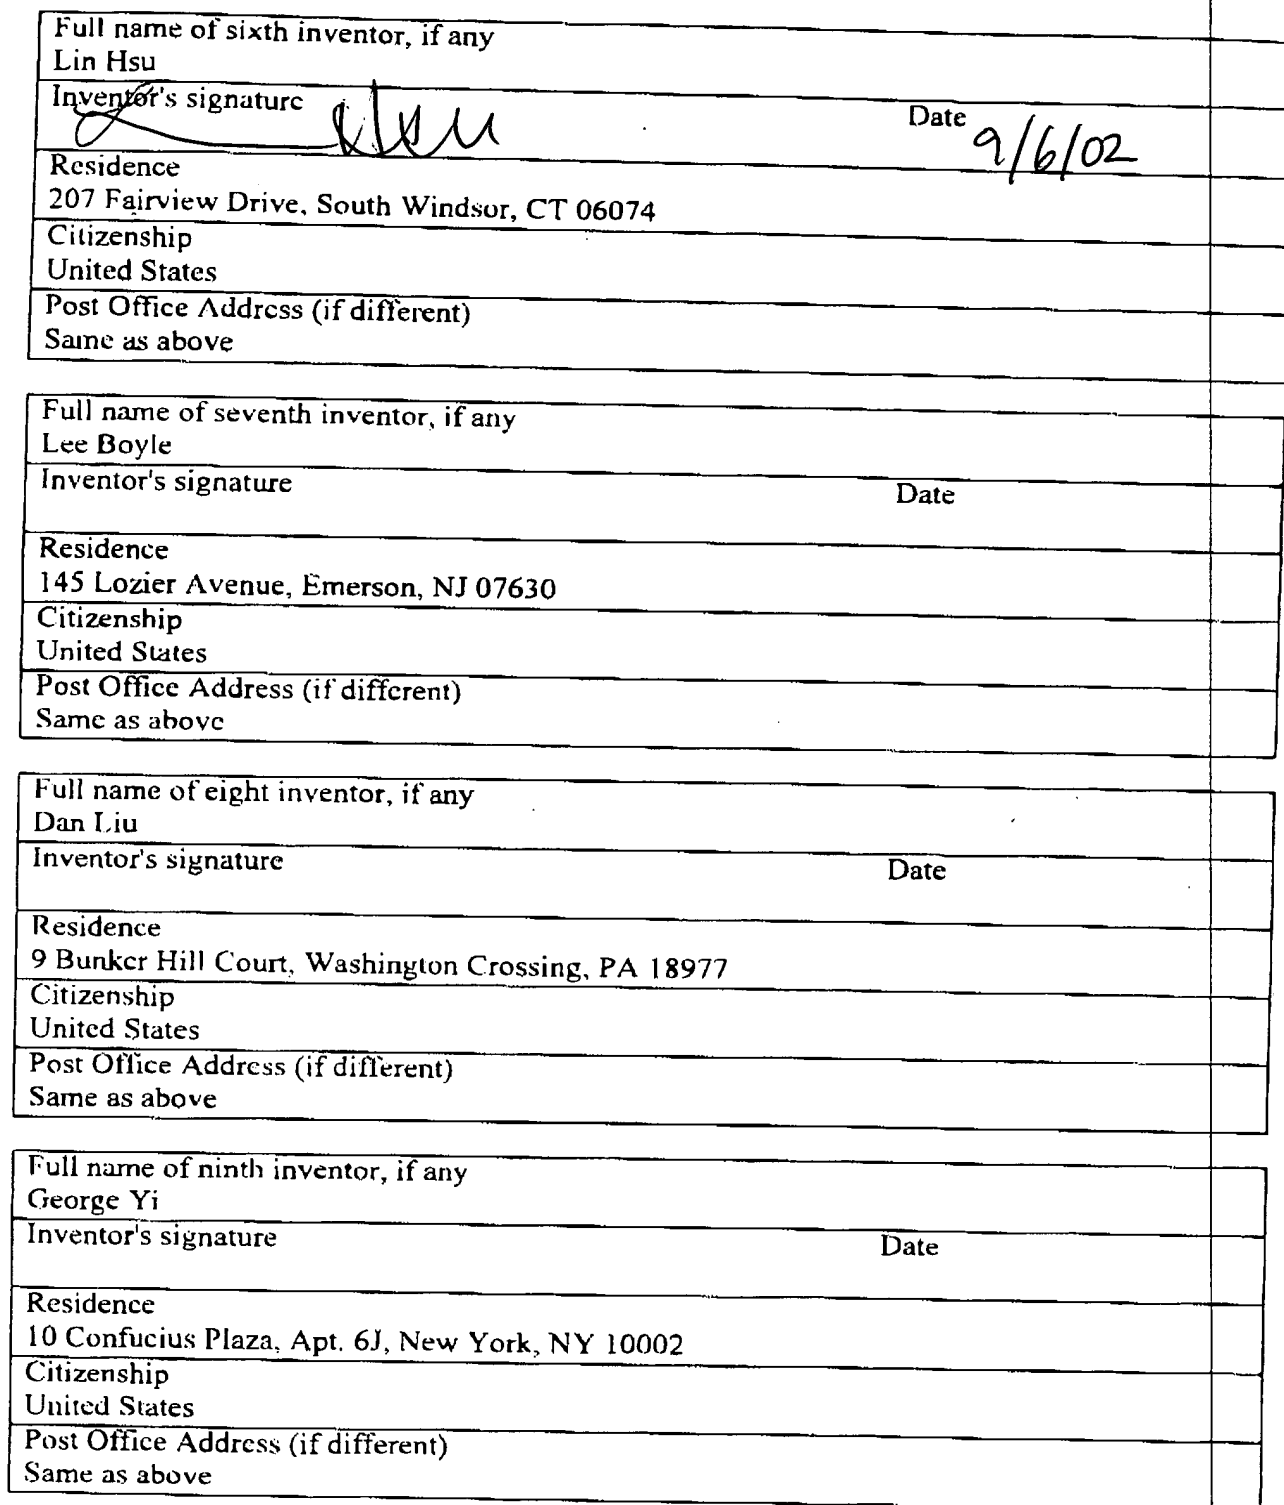 Full name of sixth inventor, if any
Lin Hsu
Inventor's signature Hsu Date 9/6/02
Residence
207 Fairview Drive, South Windsor, CT 06074
Citizenship
United States
Post Office Address (if different)
Same as above
Full name of seventh inventor, if any
Lee Boyle
Inventor's signature Date
Residence
145 Lozier Avenue, Emerson, NJ 07630
Citizenship
United States
Post Office Address (if different)
Same as above
Full name of eight inventor, if any
Dan Liu
Inventor's signature Date
Residence
9 Bunker Hill Court, Washington Crossing, PA 18977
Citizenship
United States
Post Office Address (if different)
Same as above
Full name of ninth inventor, if any
George Yi
Inventor's signature Date
Residence
10 Confucius Plaza, Apt. 6J, New York, NY 10002
Citizenship
United States
Post Office Address (if different)
Same as above